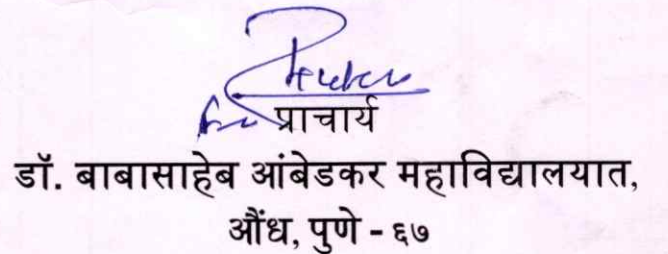 प्राचार्य
डॉ. बाबासाहेब आंबेडकर महाविद्यालयात,
औंध, पुणे - ६७